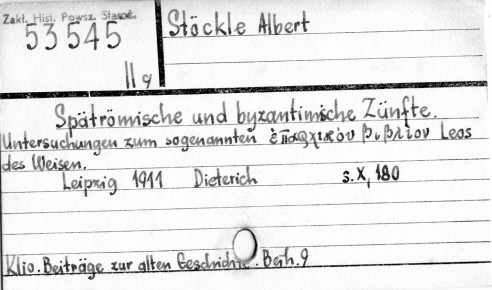 Zakł. Hist. Powsz. Staroż.
53545
II g
Stöckle Albert
Spätrömische und byzantinische Zünfte.
Untersuchungen zum sogenannten ἐπαρχικὸν βιβλίον Leos
des Weisen.
Leipzig 1911 Dieterich s.X, 180
Klio. Beiträge zur alten Geschichte. Beih. 9